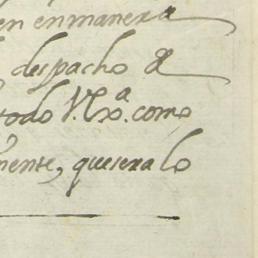 en enmanera
despacho de
todo V.Sª. como
mente, que sera lo